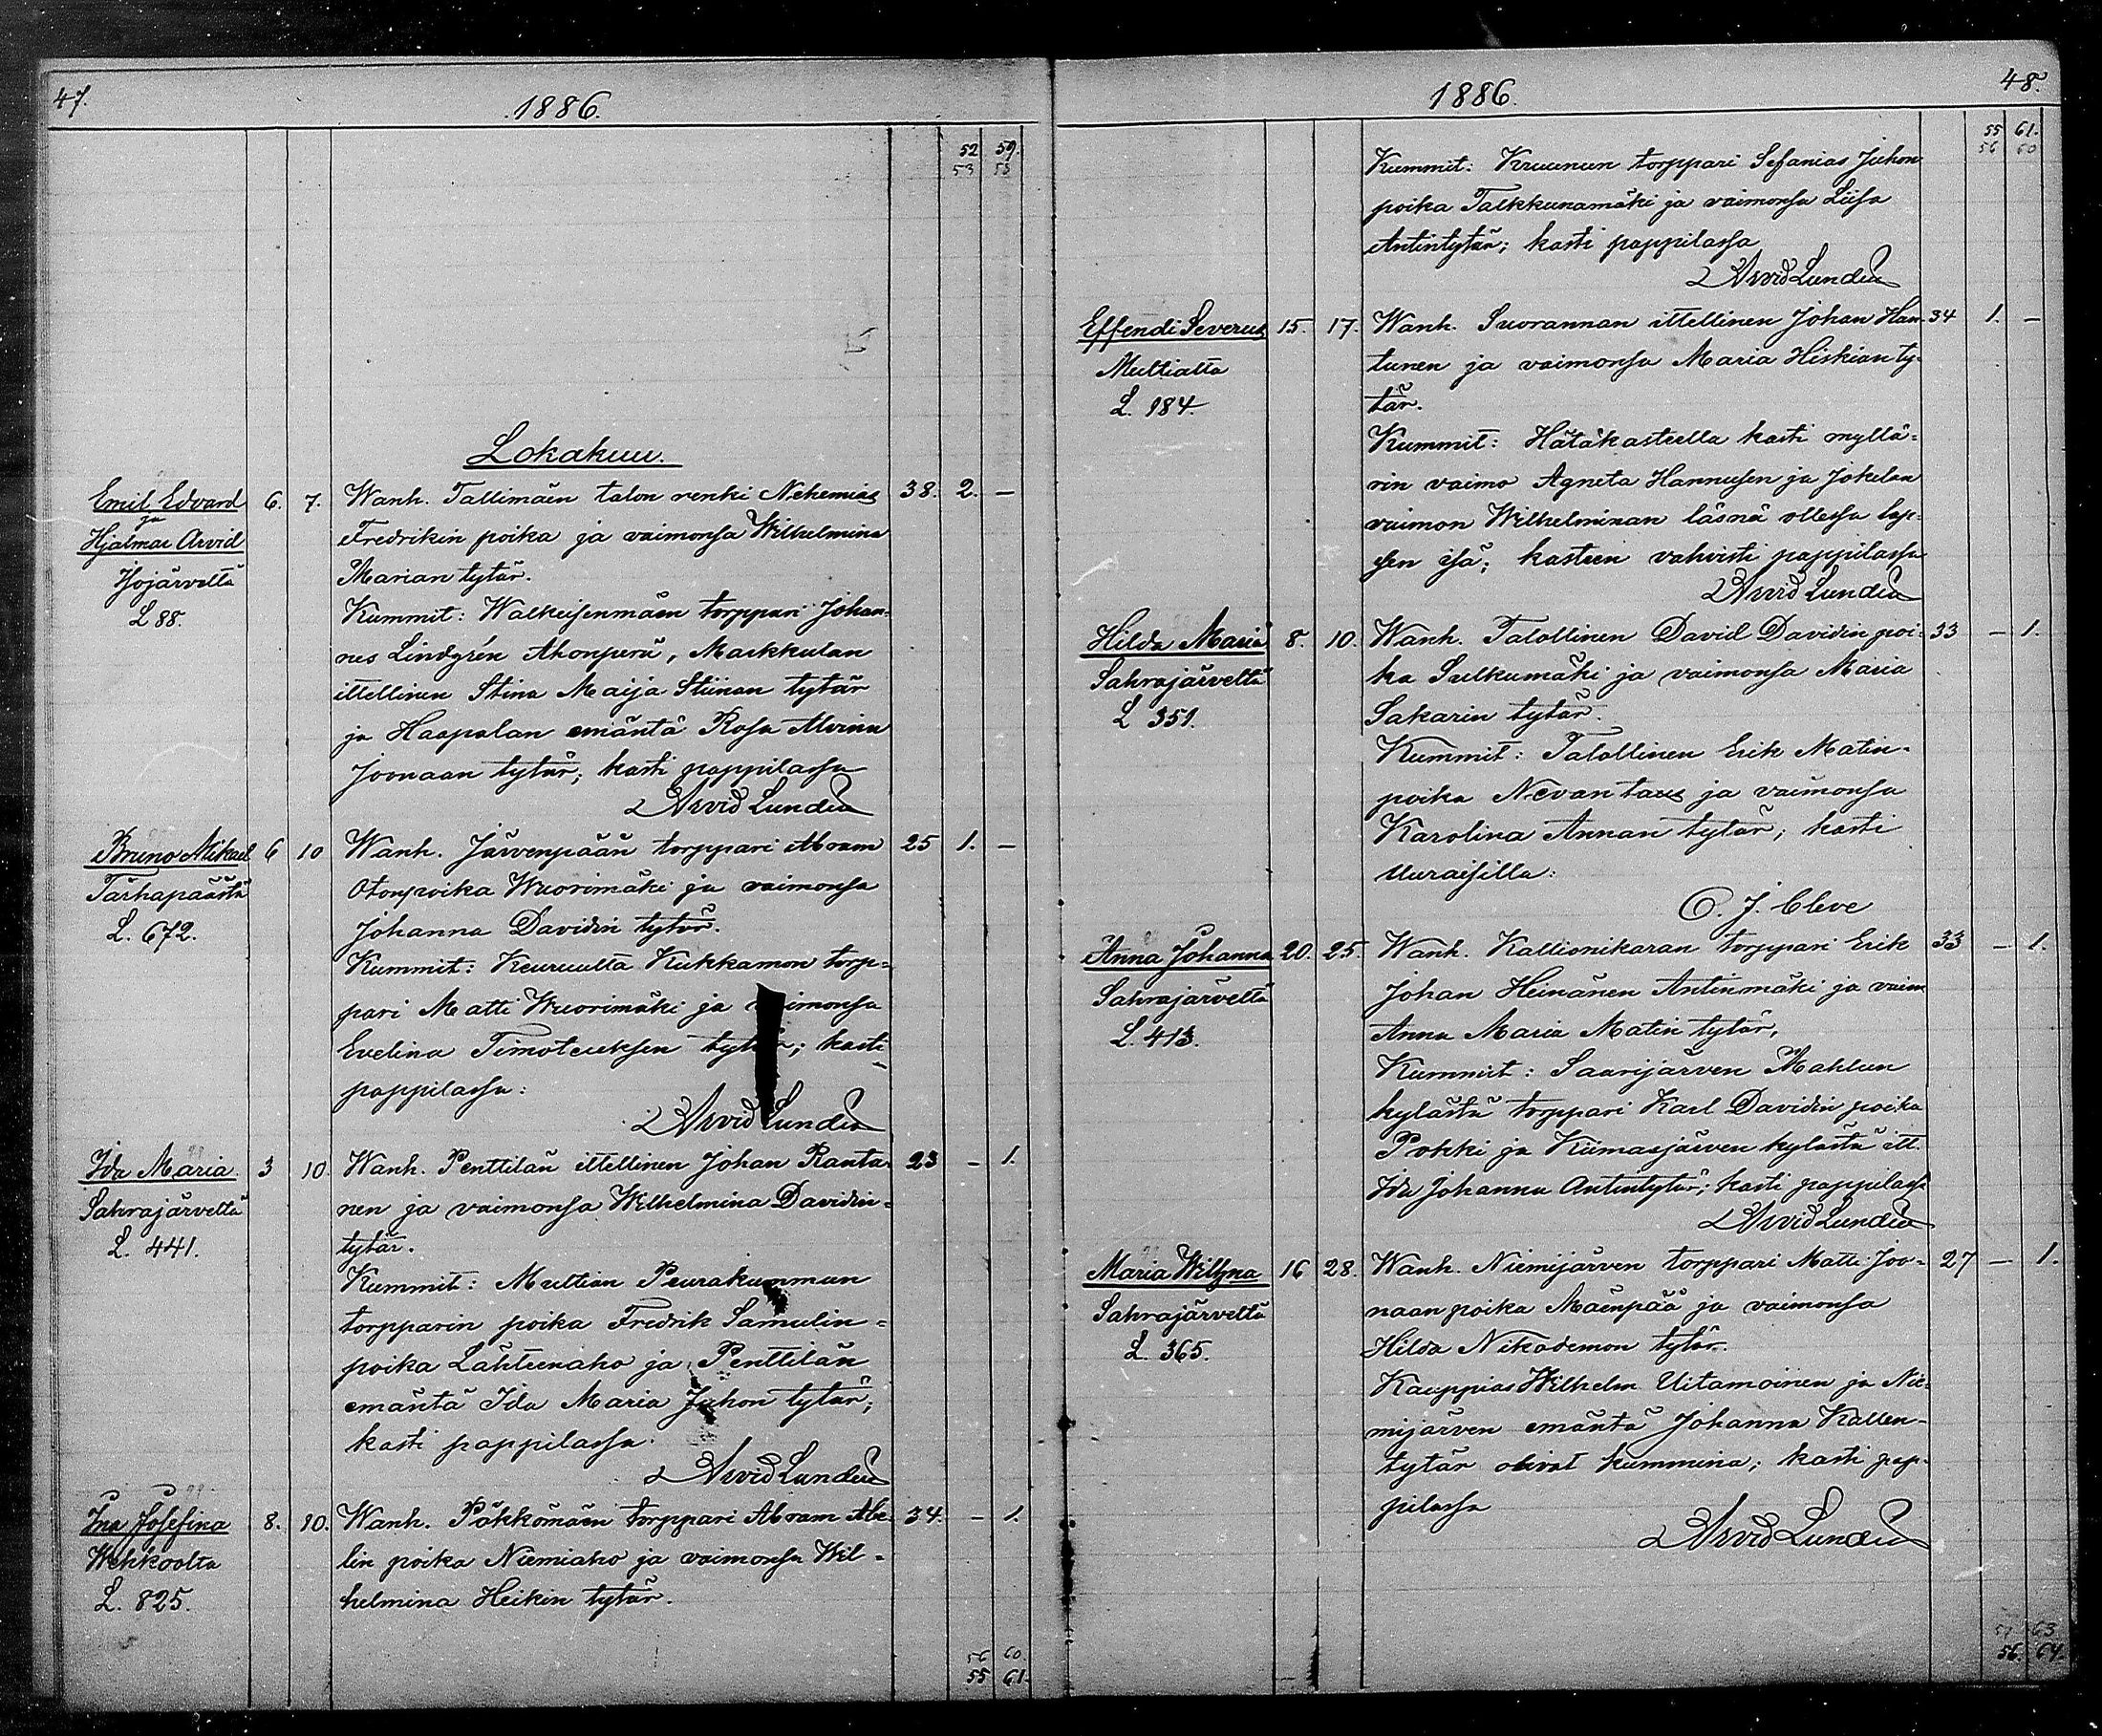 47.
1886.
52 59.
53 58
Lokakuu.
Emil Edvard 6. 7. Wanh. Tallimäen talon renki Nehemias 38. 2. —
ja
Hjalmar Arvid Fredrikin poika ja vaimonsa Wilhelmina
Isojärveltä Marian tytär.
L 88. Kummit: Walkeisenmäen torppari Johan-
nes Lindgrén Ahonperä, Markkulan
ittellinen Stina Maija Stiinan tytär
ja Haapalan emäntä Rosa Alvina
Joonaan tytär; kasti pappilassa
Arvid Lundén
Bruno Mikael 6 10 Wanh. Järvenpään torppari Abram 25 1. —
Tarhapäästä Otonpoika Wuorimäki ja vaimonsa
L. 672. Johanna Davidin tytär.
Kummit: Keuruulta Kukkamon torp-
pari Matti Wuorimäki ja vaimonsa
Evelina Timoteuksen tytär; kasti
pappilassa:
Arvid Lundén
Ida Maria 3 10. Wanh. Penttilän ittellinen Johan Ranta- 23 — 1.
Sahrajärveltä nen ja vaimonsa Wilhelmina Davidin-
L. 441. tytär.
Kummit: Multian Peurakunmun
torpparin poika Fredrik Samulin-
poika Lähteenaho ja Penttilän
emäntä Ida Maria Juhon tytär;
kasti pappilassa.
Arvid Lundén
Ina Josefina 8. 10. Wanh. Päkkömäen torppari Abram Abe- 34. — 1.
Wehkoolta lin poika Niemiaho ja vaimonsa Wil-
L. 825. helmina Heikin tytär.
56 60.
55 61.
1886.
48.
55 61.
56 60
Kummit: Kruunun torppari Sefanias Juhon
poika Talkkunamäki ja vaimonsa Liisa
Antintytär; kasti pappilassa
Arvid Lundén
Effendi Severus 15. 17. Wanh. Suorannan ittellinen Johan Han- 34 1. —
Multialta tunen ja vaimonsa Maria Hiskian ty-
L. 184. tär.
Kummit: Hätäkasteella kasti myllä-
rin vaimo Agneta Hannusen ja Jokelan
vaimon Wilhelminan läsnä ollessa lap-
sen isä; kasteen vahvisti pappilassa
Arvid Lundén
Hilda Maria 8. 10. Wanh. Talollinen David Davidin poi- 33 — 1.
Sahrajärveltä ka Sulkumäki ja vaimonsa Maria
L 351. Sakarin tytär.
Kummit: Talollinen Erik Matin-
poika Nevantaus ja vaimonsa
Karolina Annan tytär; kasti
Uuraisilla:
C. J. Cleve
Anna Johanna 20. 25. Wanh. Kallionikaran torppari Erik 33 — 1.
Sahrajärveltä Johan Heinänen Antinmäki ja vaim
L. 413. Anna Maria Matin tytär,
Kummit: Saarijärven Mahlun
kylästä torppari Karl Davidin poika
Pokki ja Kiimasjärven kylästä itt.
Ida Johanna Antintytär; kasti pappilassa
Arvid Lundén
Maria Wilhna 16 28. Wanh. Niemijärven torppari Matti Joo- 27 — 1.
Sahrajärveltä naan poika Mäenpää ja vaimonsa
L. 365. Hilda Nikodemon tytär.
Kauppias Wilhelm Uitamoinen ja Nie-
mijärven emäntä Johanna Kallen-
tytär olivat kummina; kasti pap-
pilassa
Arvid Lundén
57 63
56. 64.